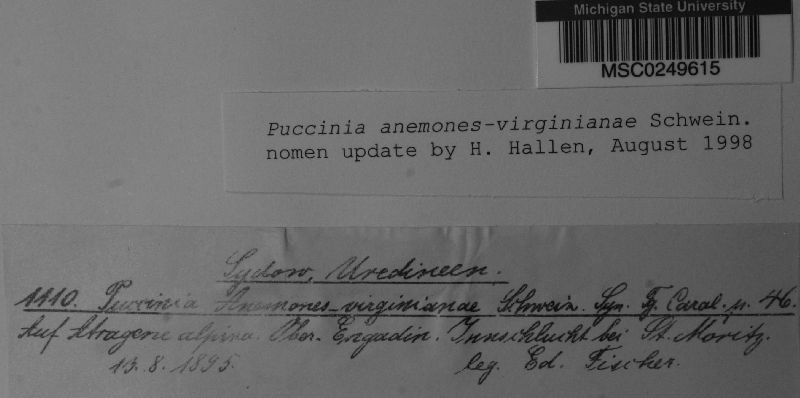 Michigan State University
MSC0249615
Puccinia anemones-virginianae Schwein.
nomen update by H. Hallen, August 1998
Sydow, Uredineen.
1110. Puccinia Anemones-virginianae Schwein. Syn. Fg. Caral. n. 46.
Auf Atragene alpina. Ober-Engadin. Innschlucht bei St. Moritz.
13. 8. 1895. leg. Ed. Fischer.